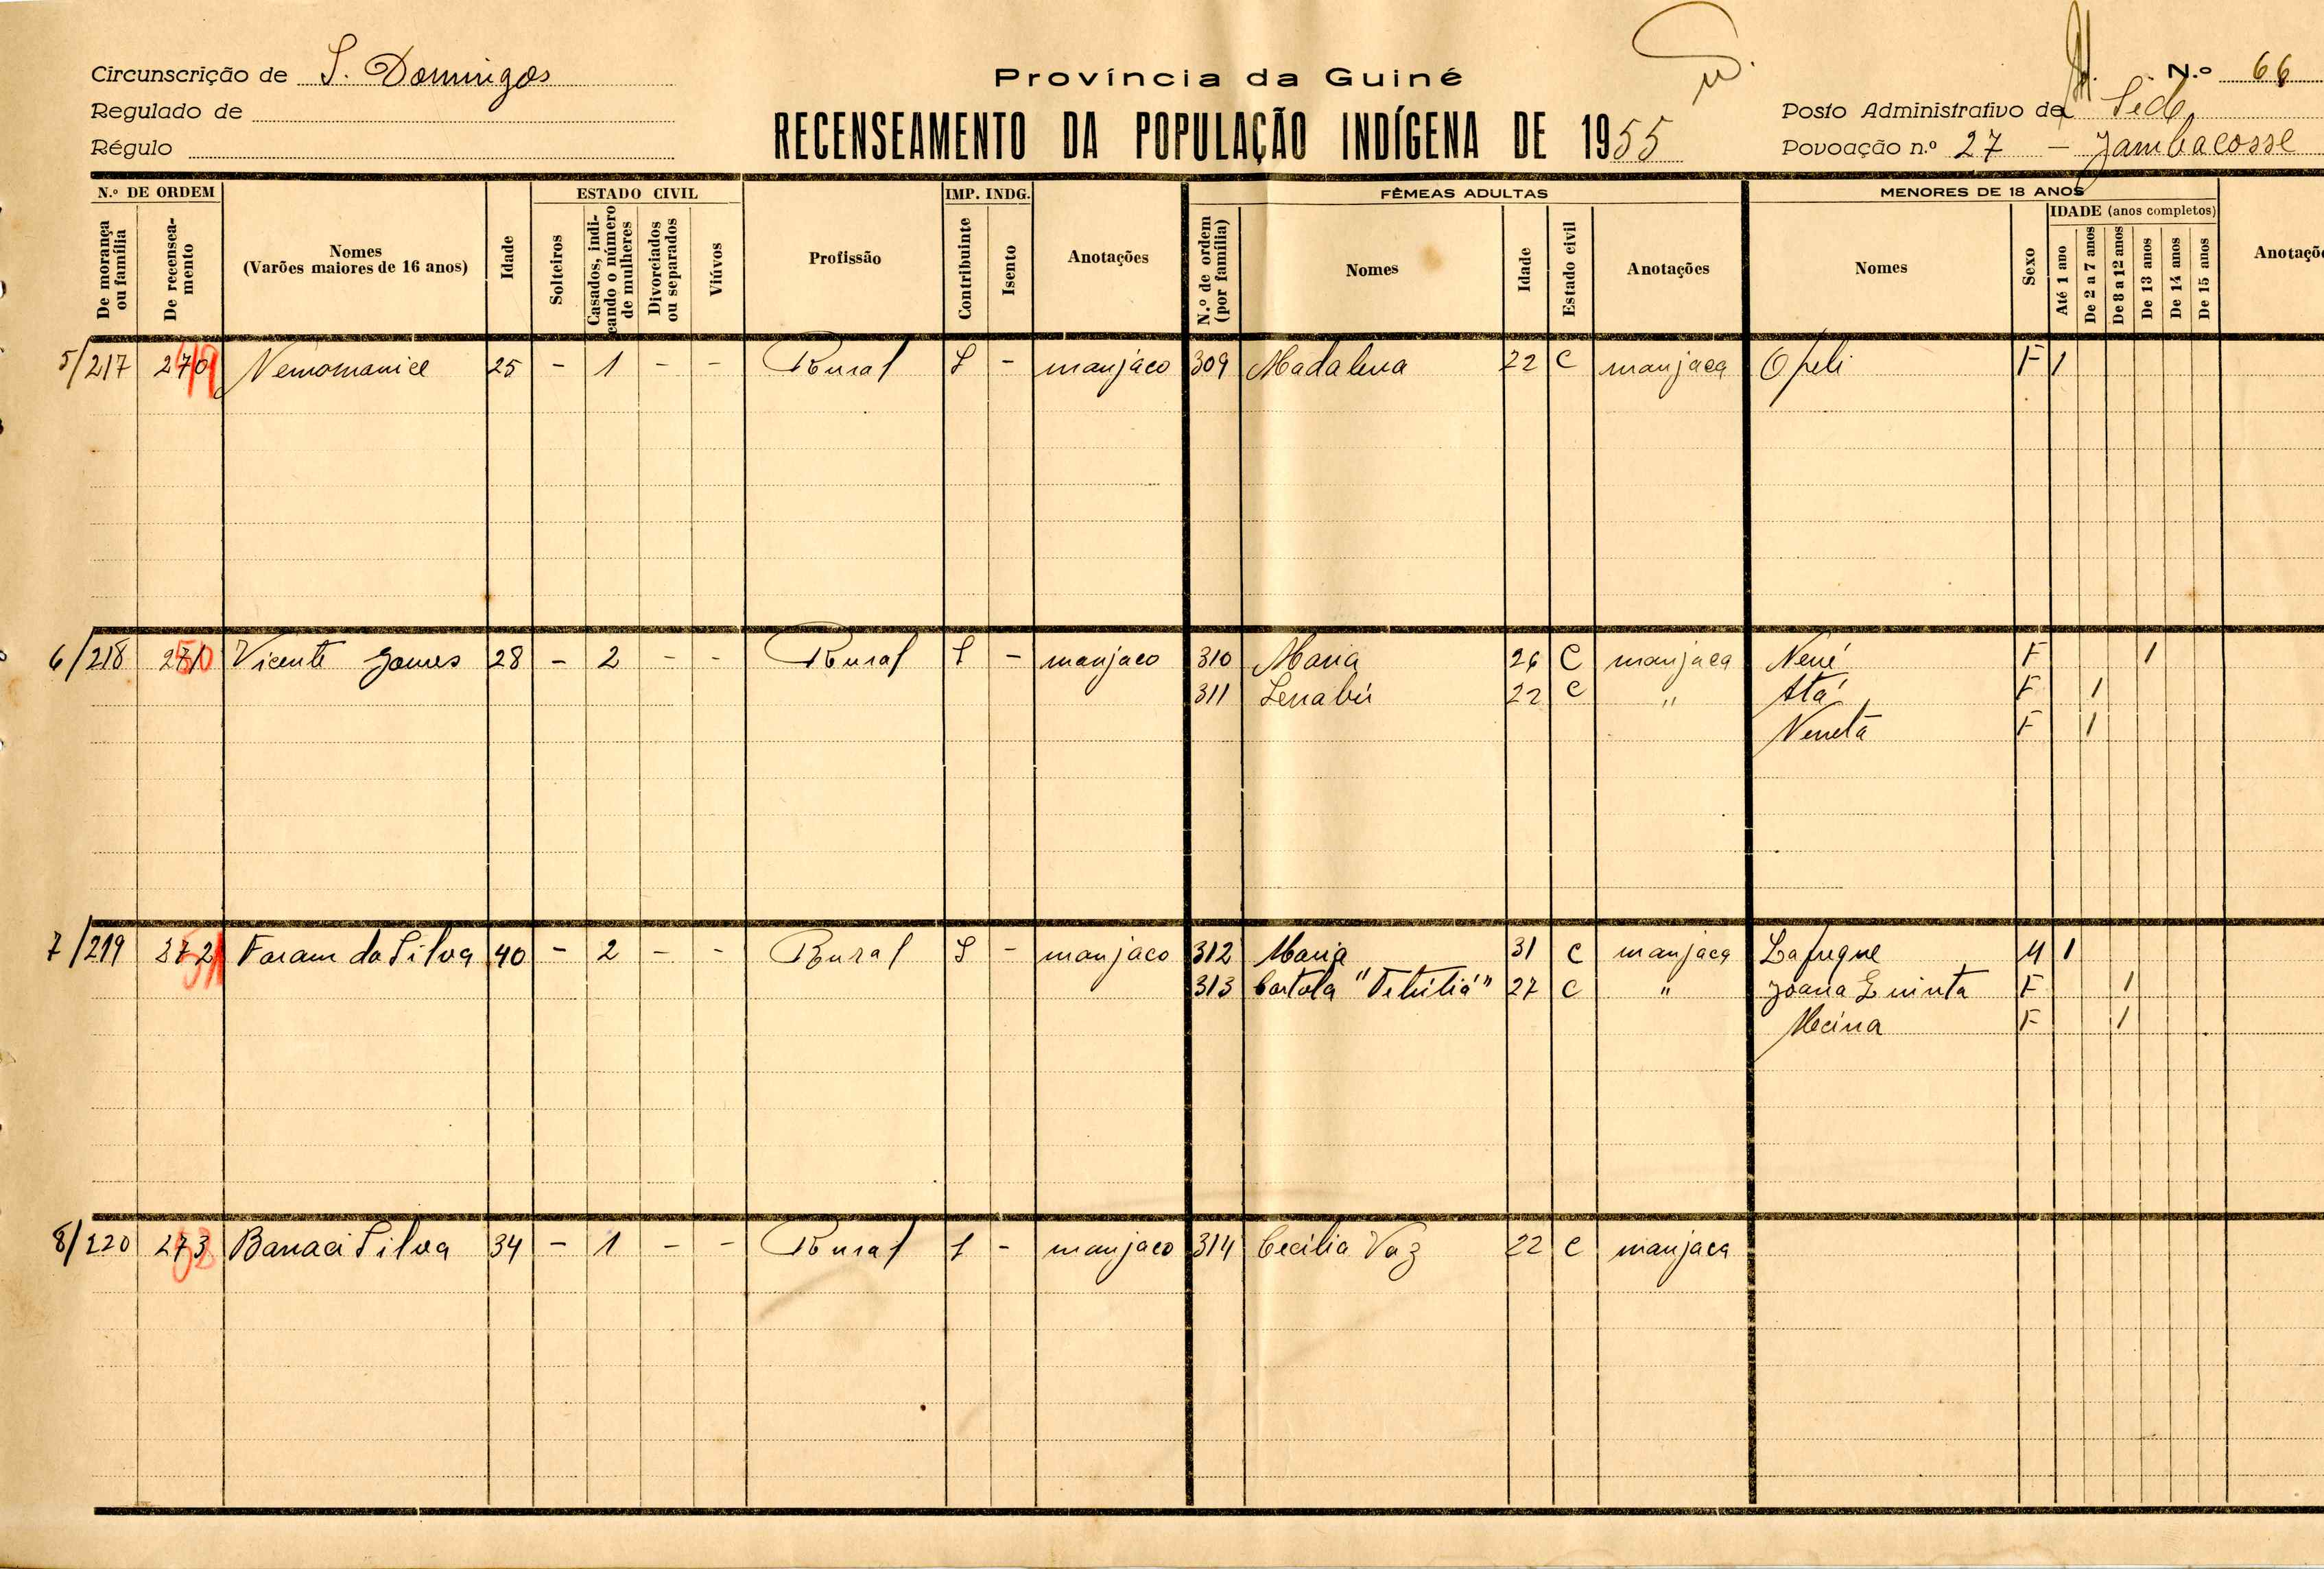 Circunscrição de S. Domingos
Regulado de
Régulo
Província da Guiné
RECENSEAMENTO DA POPULAÇÃO INDÍGENA DE 1955
N.º 66
Posto Administrativo de Sede
Povoação n.º 27 - Jambacosse
N.º DE ORDEM
De morança ou família
De recenseamento
Nomes
(Varões maiores de 16 anos)
Idade
ESTADO CIVIL
Solteiros
Casados, indicando o número de mulheres
Divorciados ou separados
Viúvos
Profissão
IMP. INDG.
Contribuinte
Isento
Anotações
FÊMEAS ADULTAS
N.º de ordem (por família)
Nomes
Idade
Estado civil
Anotações
MENORES DE 18 ANOS
Nomes
Sexo
IDADE (anos completos)
Até 1 ano
De 2 a 7 anos
De 8 a 12 anos
De 13 anos
De 14 anos
De 15 anos
Anotaçõe
5/217 270 25 - 1 - - Rural S - manjaco 309 Madalena 22 C manjaca Opeli F 1
6/218 271 Vicente Gomes 28 - 2 - - Rural S - manjaco 310 Maria 26 C manjaca Nené F 1
311 Lenabú 22 C " Atá F 1
Venetá F 1
7/219 372 Faram da Silva 40 - 2 - - Rural S - manjaco 312 Maria 31 C manjaca Lafuque M 1
313 27 C " Joana Quinta F 1
Mecina F 1
8/220 273 Banaci Silva 34 - 1 - - Rural S - manjaco 314 Cecilia Vaz 22 C manjaca